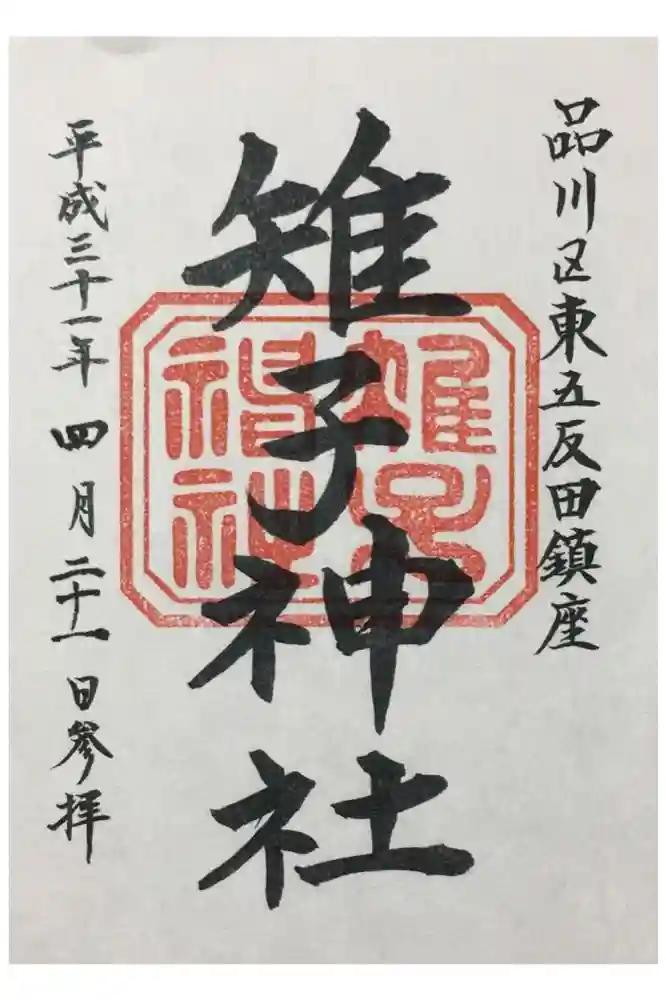 品川区東五反田鎮座
雉子神社
雉子
神社
平成三十一年四月二十一日参拝